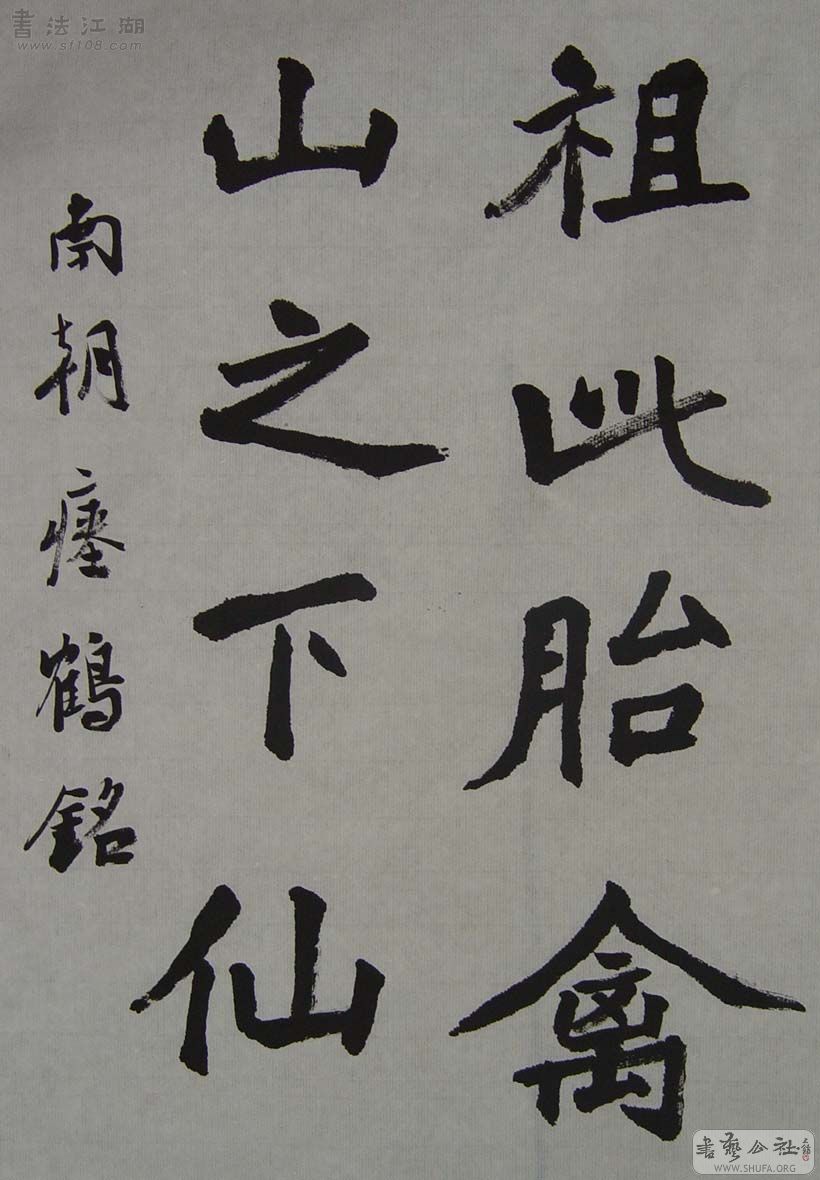 祖此胎禽
山之下仙
南朝瘗鶴銘
書法江湖
www.sf108.com
書藝公社
WWW.SHUFA.ORG